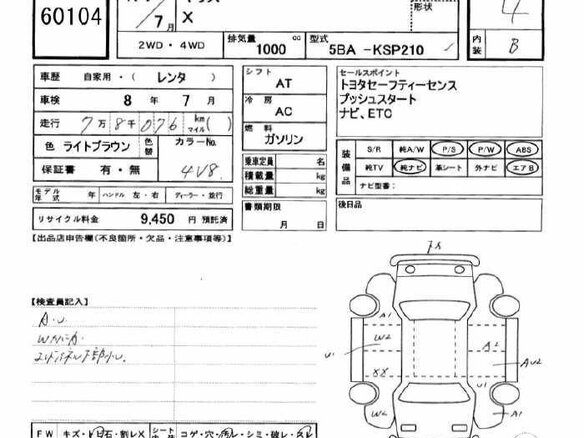 形状
60104
7月
X
4
2WD・4WD
排気量 1000 cc 型式 5BA -KSP210
内装 B
車歴 自家用・(レンタ)
車検 8年 7月
走行 7万8千076 km マイル( )
色 ライトブラウン 色替 カラーNo. 4V8
保証書 有・無
モデル年式 年 ハンドル 左・右 ディーラー・並行
リサイクル料金 9,450 円 預託済
シフト AT
冷房 AC
燃料 ガソリン
乗車定員 名
積載量 kg
総重量 kg
書類期限 月 日
セールスポイント
トヨタセーフティーセンス
プッシュスタート
ナビ、ETC
装備品
S/R 純A/W P/S P/W ABS
純TV 純ナビ 革シート 外ナビ エアB
ナビ型番:
後日品
【出品店申告欄(不良箇所・欠品・注意事項等)】
【検査員記入】
A.U
A1
W2
U1
XX
W2
A2
AU2
U1
A1
FW キズ・
石・割レX
コゲ・穴・汚レ・シミ・破レ・スレ